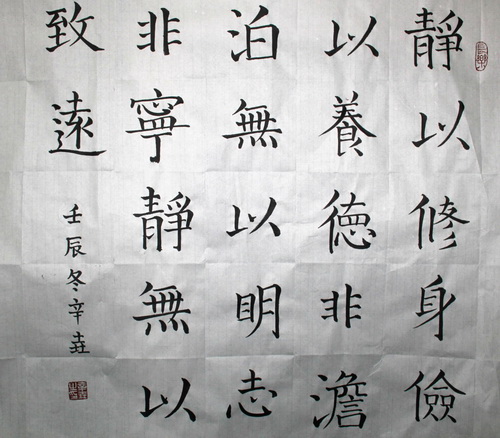 靜以修身儉
以養德非澹
泊無以明志
非寧靜無以
致遠
壬辰冬辛垚